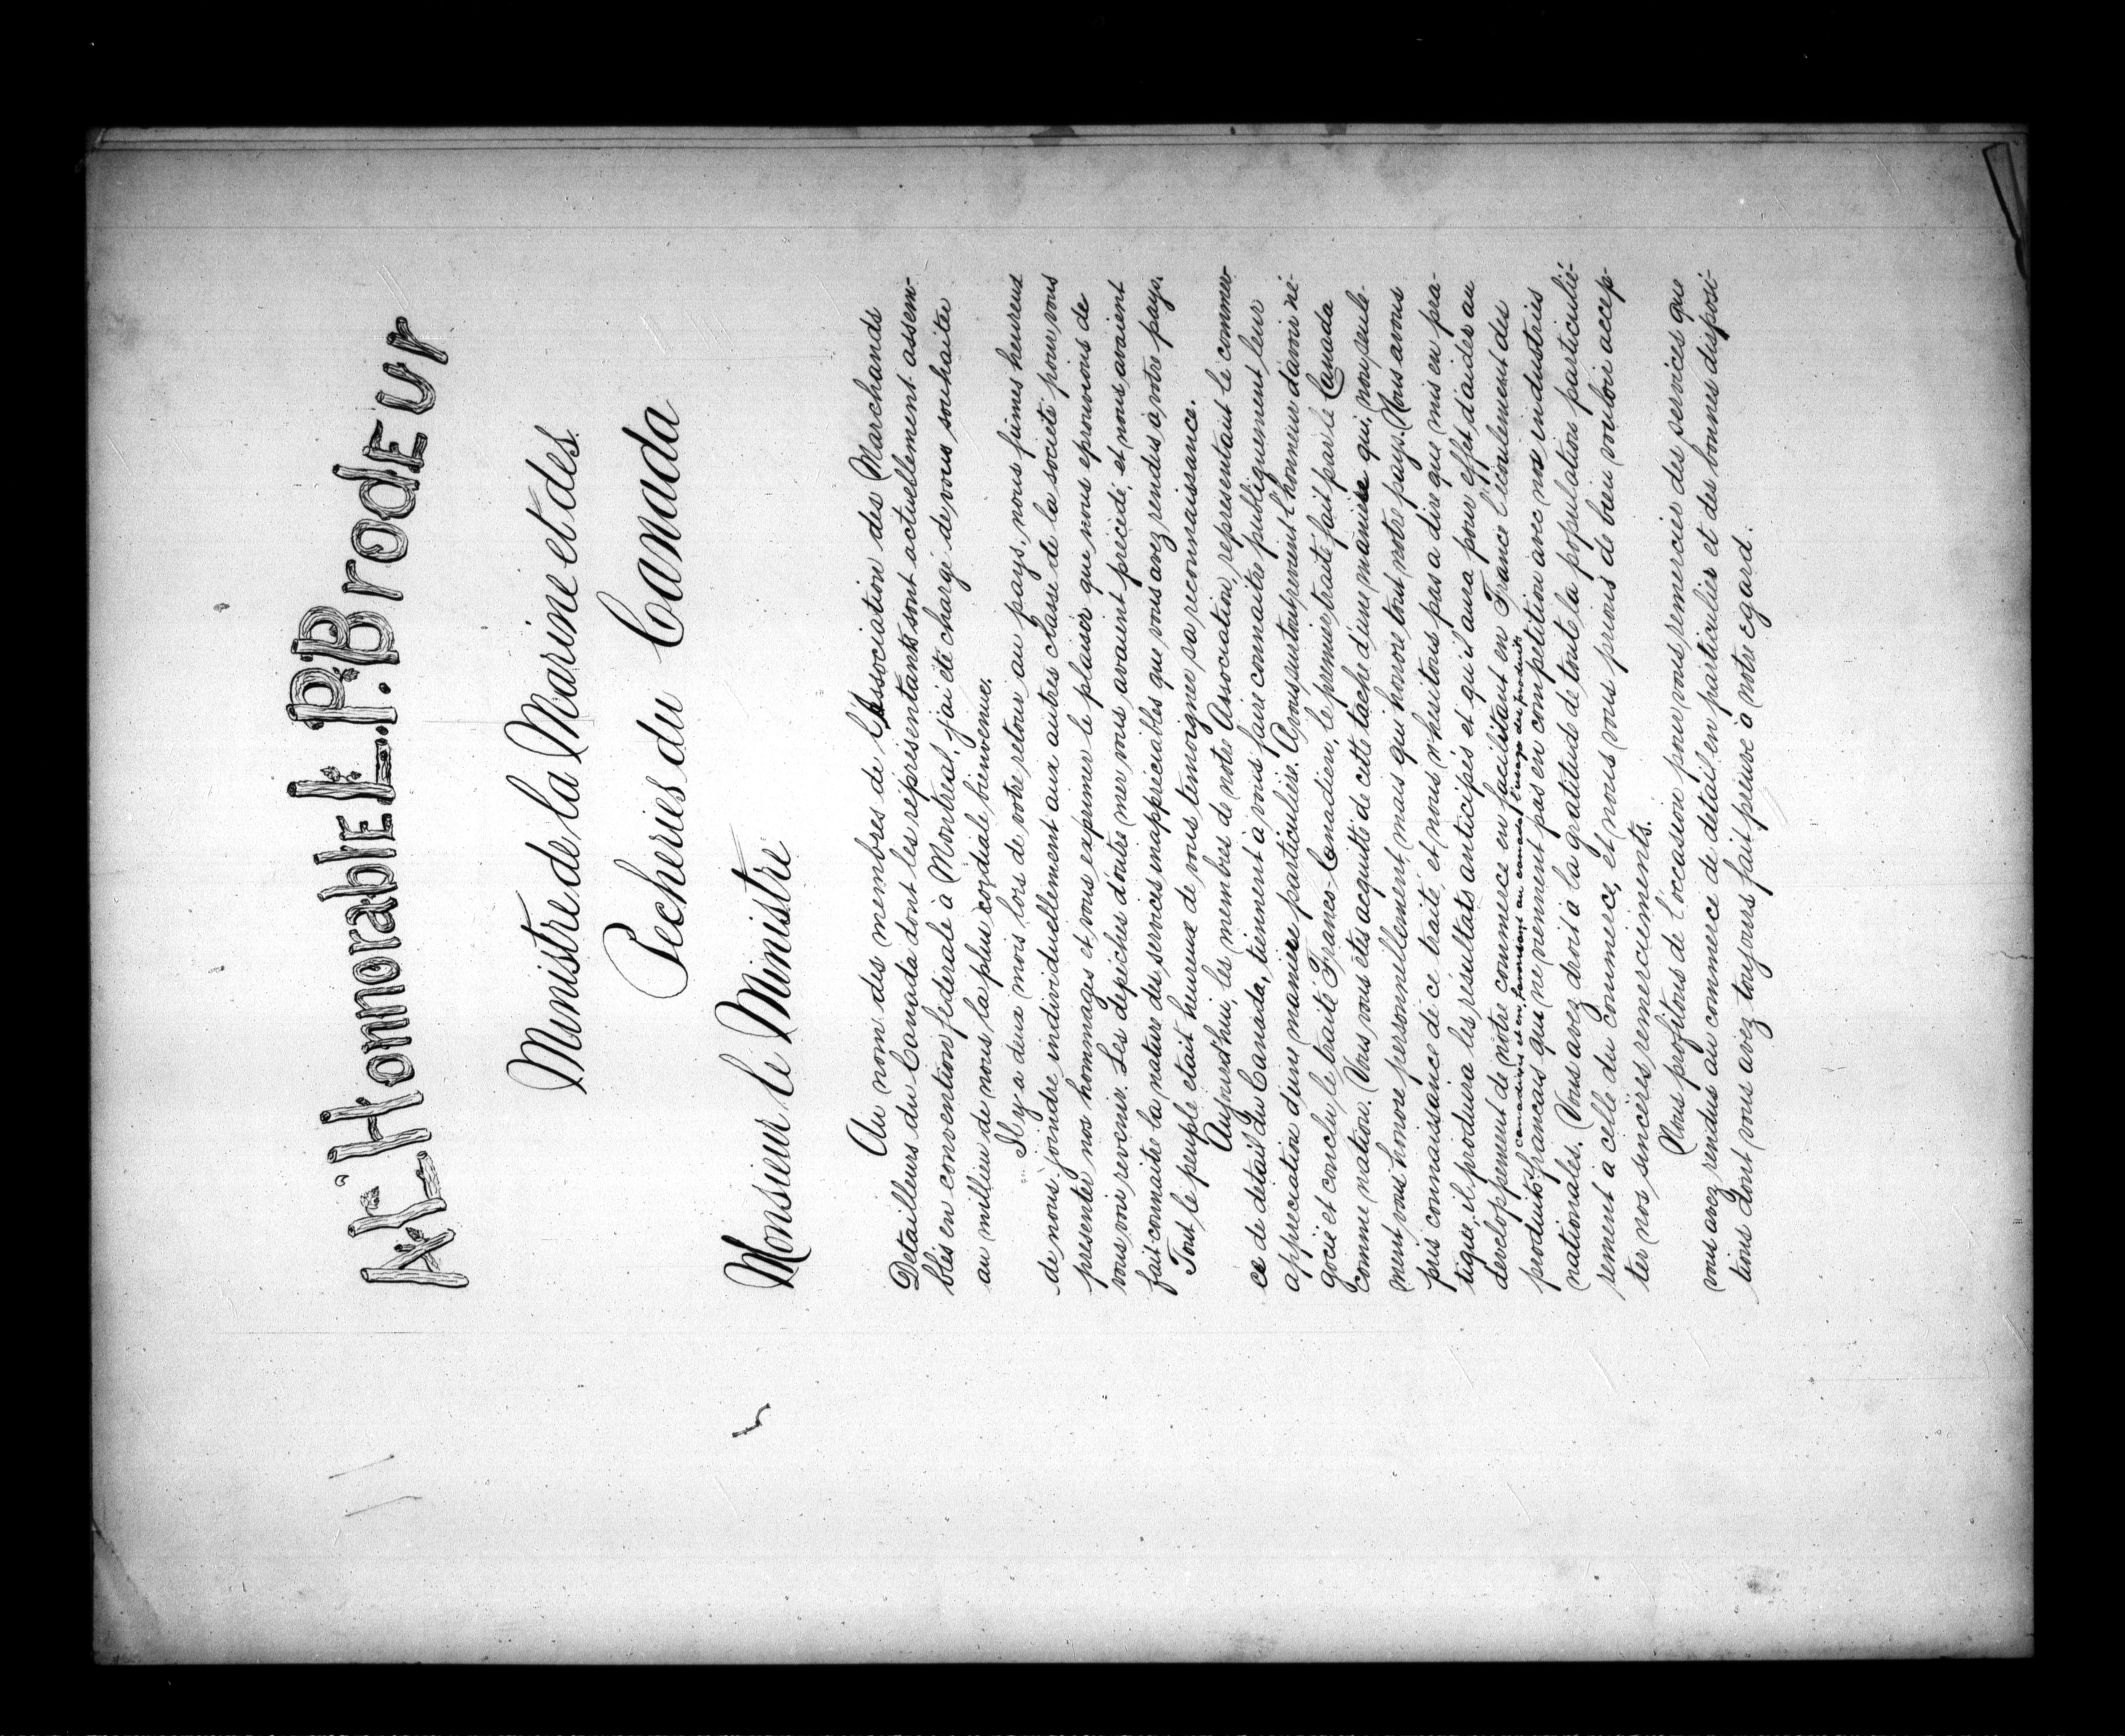 A L'HonnorablE L.P. BrodEur
Ministre de la Marine et des
Pecheries du Canada
Monsieur le Ministre
Au nom des membres de l'Association des Marchands
Detailleurs du Canada dont les représentants sont actuellement assem-
blés en convention fédérale à Montreal, j'ai été chargé de vous souhaiter
au millieu de nous la plus cordiale bienvenue.
Il y a deux mois lors de votre retour au pays, nous fûmes heureux
de nous joindre individuellement aux autres classe de la société pour vous
presenter nos hommages et vous exprimer le plaisir que nous eprouvions de
vous voir revenir. Les depêches d'outre mer vous avaient précédé, et nous avaient
fait connaitre la nature des services inappréciables que vous avez rendus à votre pays.
Tout le peuple était heureux de vous temoigner sa reconnaissance.
Aujourd'hui, les membres de notre Association, représentant le commer-
ce de détail du Canada, tiennent à vous faire connaitre publiquement leur
appreciation d'une manière particulière. Avous surtout revient l'honneur d'avoir né-
gocié et conclu le traité Franco-Canadien, le premier traité fait par le Canada
comme nation. Vous vous êtes acquitté de cette tache d'une manière qui, non seule-
ment vous honore personnellement, mais qui honore tout notre pays. Nous avons
pris connaissance de ce traité, et nous n'hesitons pas a dire que mis en pra-
tique, il produira les résultats anticipés et qu'il aura pour effet d'aider au
developpement de notre commerce en facilitant en France l'écoulement des
produits canadiens et en favorisant au canada l'usage des produits
francais qui ne viennent pas en compétition avec nos industries
nationales. Vous avez droit à la gratitude de toute la population particuliè-
rement a celle du commerce, et nous vous prions de bien vouloir accep-
ter nos sincères remerciements.
Nous profitons de l'occasion pour vous remercier des services que
vous avez rendus au commerce de détail en particulier et des bonnes disposi-
tions dont vous avez toujours fait preuve à notre égard.